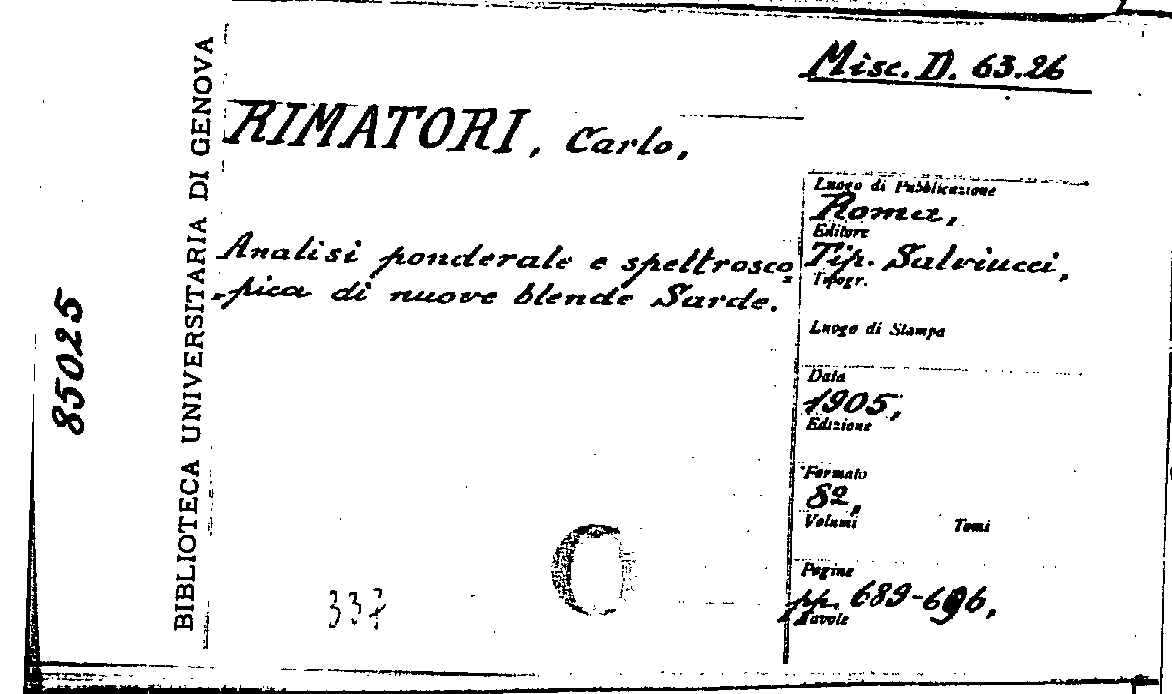 Misc. D. 63.26
BIBLIOTECA UNIVERSITARIA DI GENOVA
85025
RIMATORI, Carlo,
Analisi ponderale e spettrosco
pica di nuove blende Sarde.
Luogo di Pubblicazione
Roma,
Editore
Tip. Salviucci,
Tipogr.
Luogo di Stampa
Data
1905,
Edizione
Formato
8º,
Volumi Tomi
Pagine
pp. 689-696,
Tavole
337